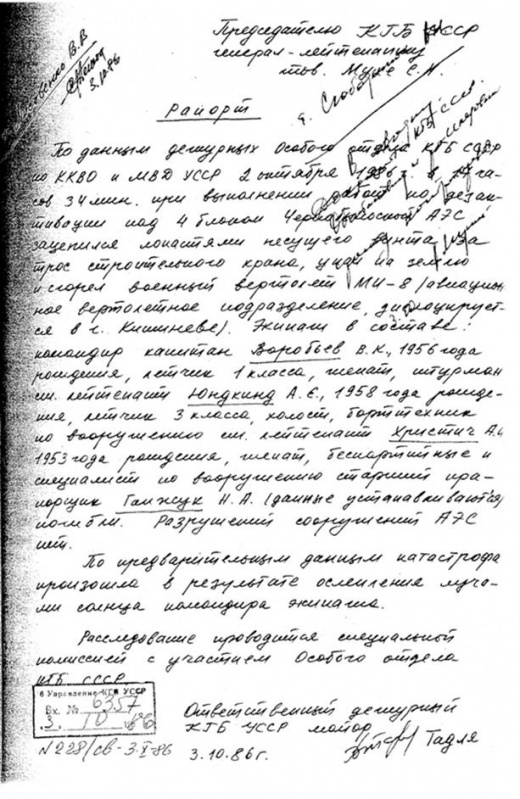 Председателю КГБ УССР
генерал-лейтенанту
тов. Мухе С.Н.
3.10.86
Рапорт
По данным дежурных Особого отдела КГБ СССР
по ККВО и МВД УССР 2 октября 1986 г. в
34 мин. при выполнении работ по дезак-
тивации над 4 блоком Чернобыльской АЭС
зацепился лопастями несущего винта за
трос строительного крана, упал на землю
и сгорел военный вертолет МИ-8 (авиацион-
ное вертолетное подразделение, дислоцирует-
ся в г. Кишиневе). Экипаж в составе:
командир капитан Воробьев В.К., 1956 года
рождения, летчик 1 класса, женат, штурман
ст. лейтенант Юнгкинд А.Е., 1958 года рожде-
ния, летчик 3 класса, холост, борттехник
по вооружению ст. лейтенант Христич А.
1953 года рождения, женат, беспартийные и
специалист по вооружению старший пра-
порщик Ганжук Н.А. (данные устанавливаются)
погибли. Разрушений сооружений АЭС
нет.
По предварительным данным катастрофа
произошла в результате ослепления луча-
ми солнца командира экипажа.
Расследование проводится специальной
комиссией с участием Особого отдела
КГБ СССР
6 Управление КГБ УССР
Вх. № 6357
3. 10 86
N 228/св - 3.X-86
Ответственный дежурный
КГБ УССР майор
Гадля
3.10.86 г.